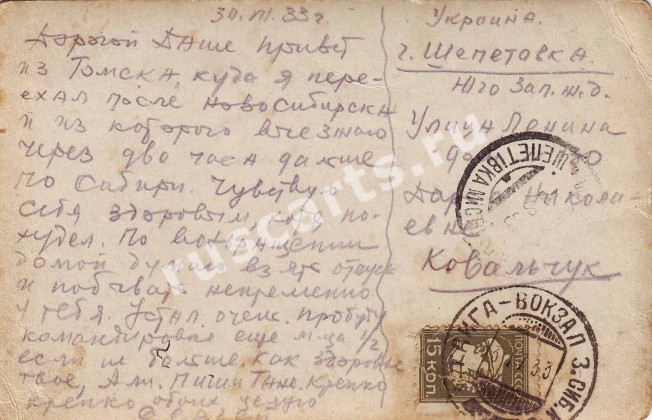 30.VII.33г.
Дорогой Даше привет
из Томска, куда я пере-
ехал после Новосибирска
и из которого выезжаю
через два часа дальше
по Сибири. Чувствую
себя здоровым хотя по-
худел. По возвращении
домой думаю взять отпуск
и побывать непременно
у тебя. Устал очень пробуду
командировке еще м-ца 1/2
если не больше. Как здоровье
твое, Али. Пиши Тане. Крепко
крепко обоих целую
Украина.
г. Шепетовка.
Юго Зап. ж.д.
Улица Ленина
Дарье Никола-
евне
Ковальчук
ШЕПЕТІВКА
ТАЙГА-ВОКЗАЛ З.СИБ.К.
ПОЧТА СССР
15 КОП.
33
ruscarts.ru